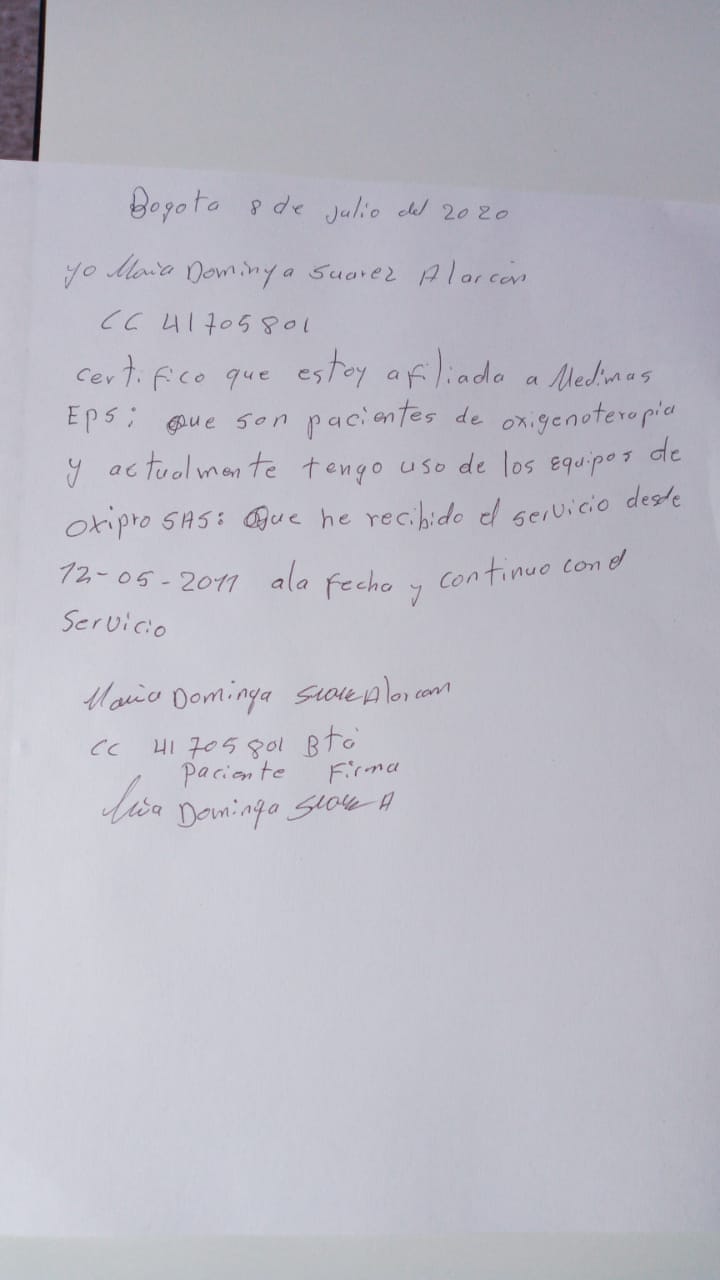 Bogota 8 de Julio del 2020
yo Maria Dominga Suarez Alarcón
CC 41705801
certifico que estoy afiliada a Medimas
Eps; que son pacientes de oxigenoterapia
y actualmente tengo uso de los equipos de
oxipro SAS: Que he recibido el servicio desde
12-05-2011 ala fecha y continuo con el
Servicio
Maria Dominga Suare Alorcom
CC 41 705 801 Bta
paciente Firma
Dominga Suare A